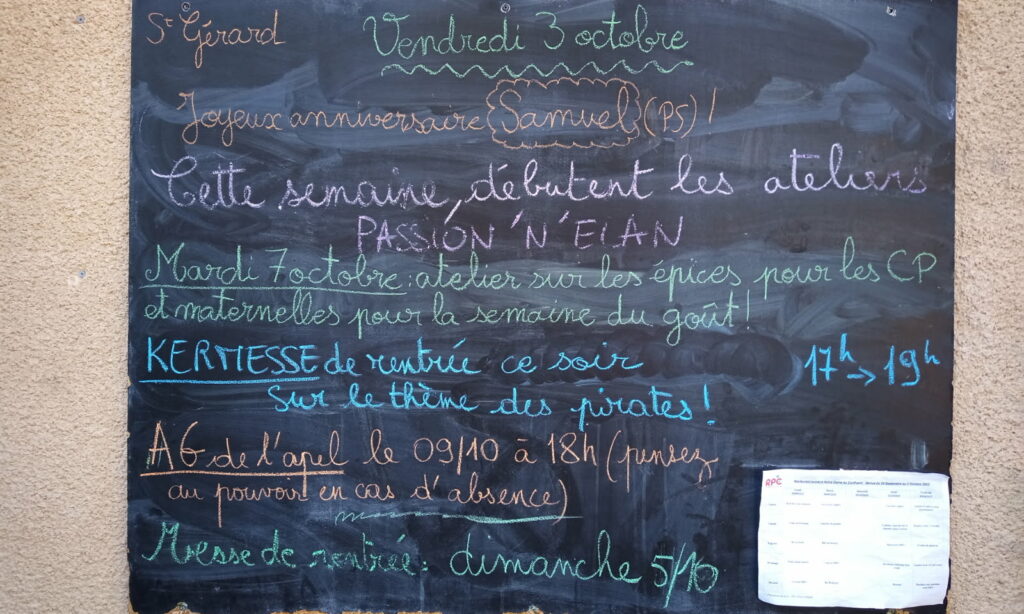 St Gérard
Vendredi 3 octobre
Joyeux anniversaire Samuel (PS) !
Cette semaine, débutent les ateliers
PASSION'N'ELAN
Mardi 7 octobre : atelier sur les épices pour les CP
et maternelles pour la semaine du goût !
KERMESSE de rentrée ce soir 17h → 19h
Sur le thème des pirates !
AG de l'apel le 09/10 à 18h (pensez
au pouvoir en cas d'absence)
Messe de rentrée : dimanche 5/10
RPC